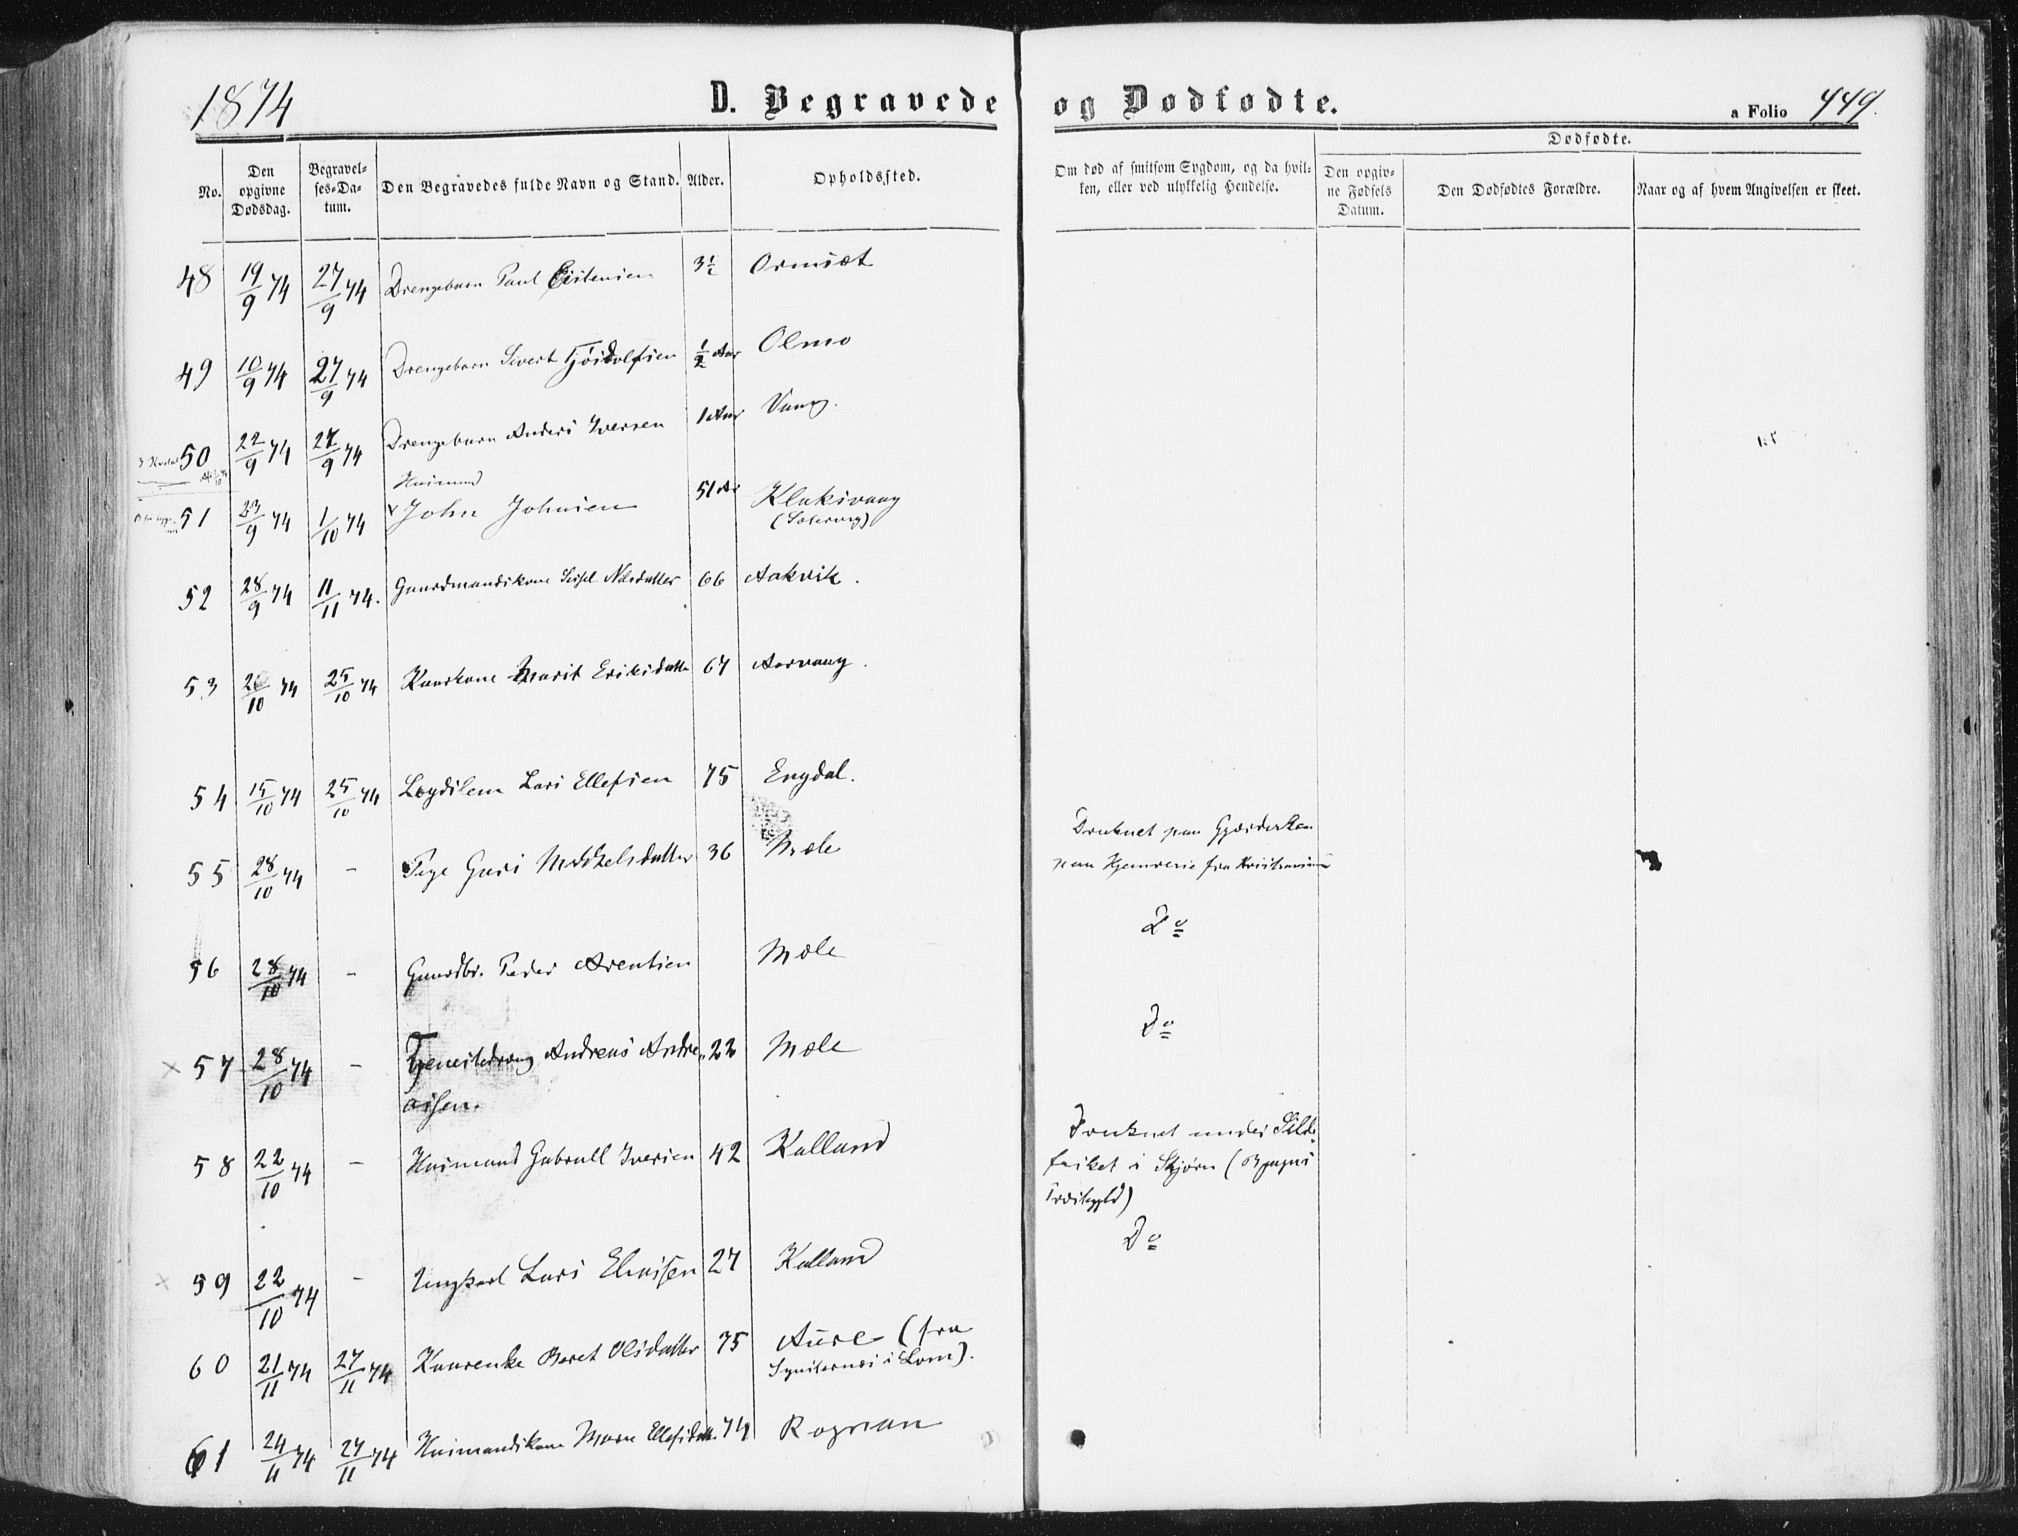 1874
D. Begravede og Dødfødte.
a Folio 449.
No.
Den opgivne Dødsdag.
Begravelses-Datum.
Den Begravedes fulde Navn og Stand.
Alder.
Opholdssted.
Om død af smitsom Sygdom, og da hvilken, eller ved ulykkelig Hendelse.
Dødfødte.
Den opgivne Fødsels Datum.
Den Dødfødtes Forældre.
Naar og af hvem Angivelsen er skeet.
48 19/9 74 27/9 74 Drengebarn Paul 3 1/2 Ormsæt
49 10/9 74 27/9 74 Drengebarn Sivert 1/2 Aar Olmo
50 22/9 74 27/9 74 Drengebarn Anders Iversen 1 Aar Vaag.
Husmand
51 23/9 74 1/10 74 John Johnsen 51 Aar Klaksvaag
52 28/9 74 11/11 74. Gaardmandskone Sissel Nilsdatter 66 Aakvik.
53 /10 74 25/10 74 Kaarkone Marit Eriksdatte 67 Aarvaag.
54 15/10 74 25/10 74 Lægdslem Lars Ellefsen 75 Engdal.
55 28/10 74 - Pige Guri Mikkelsdatter 36 Mæle
Druknet paa
paa Hjemreise fra Kristiansund
56 28/10 74 - Gaardbr. Peder Arentsen Mæle Do
57 28/10 74 - Tjenestedreng Andreas Andre- 22 Mæle Do
assen.
58 22/10 74 - Husmand Gabriel Iversen 42 Kalland
Druknet under Silde-
fisket i Skjørn (Bjugns
Præstegjeld)
59 22/10 74 - Ungkarl Lars Eliassen 27 Kalland Do
60 21/11 74 27/11 74 Kaarenke Beret Olsdatter 75 Aure (fra
i Lom).
61 24/11 74 27/11 74 Husmandskone Maren Ellefsdatt. 74 Rognan